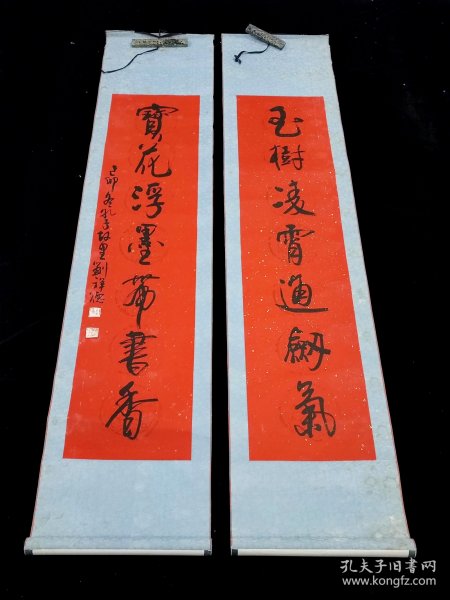 玉樹凌霄通劔氣
寶花浮墨帶書香
己卯冬孔子故里劉祥德
孔夫子旧书网
www.kongfz.com